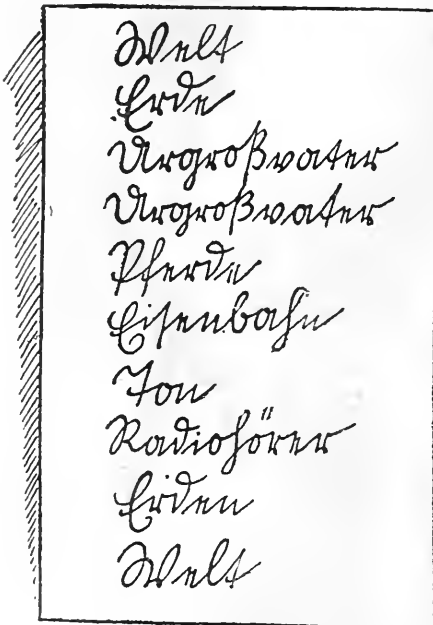 Welt
Erde
Urgroßvater
Urgroßvater
Pferde
Eisenbahn
Ton
Radiohörer
Erden
Welt